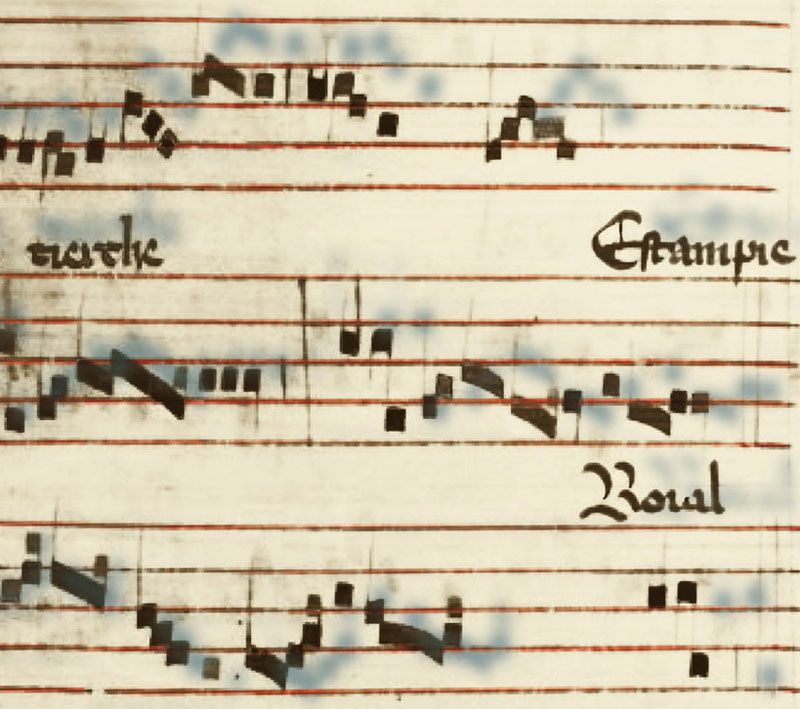 tierche Estampie
Roial